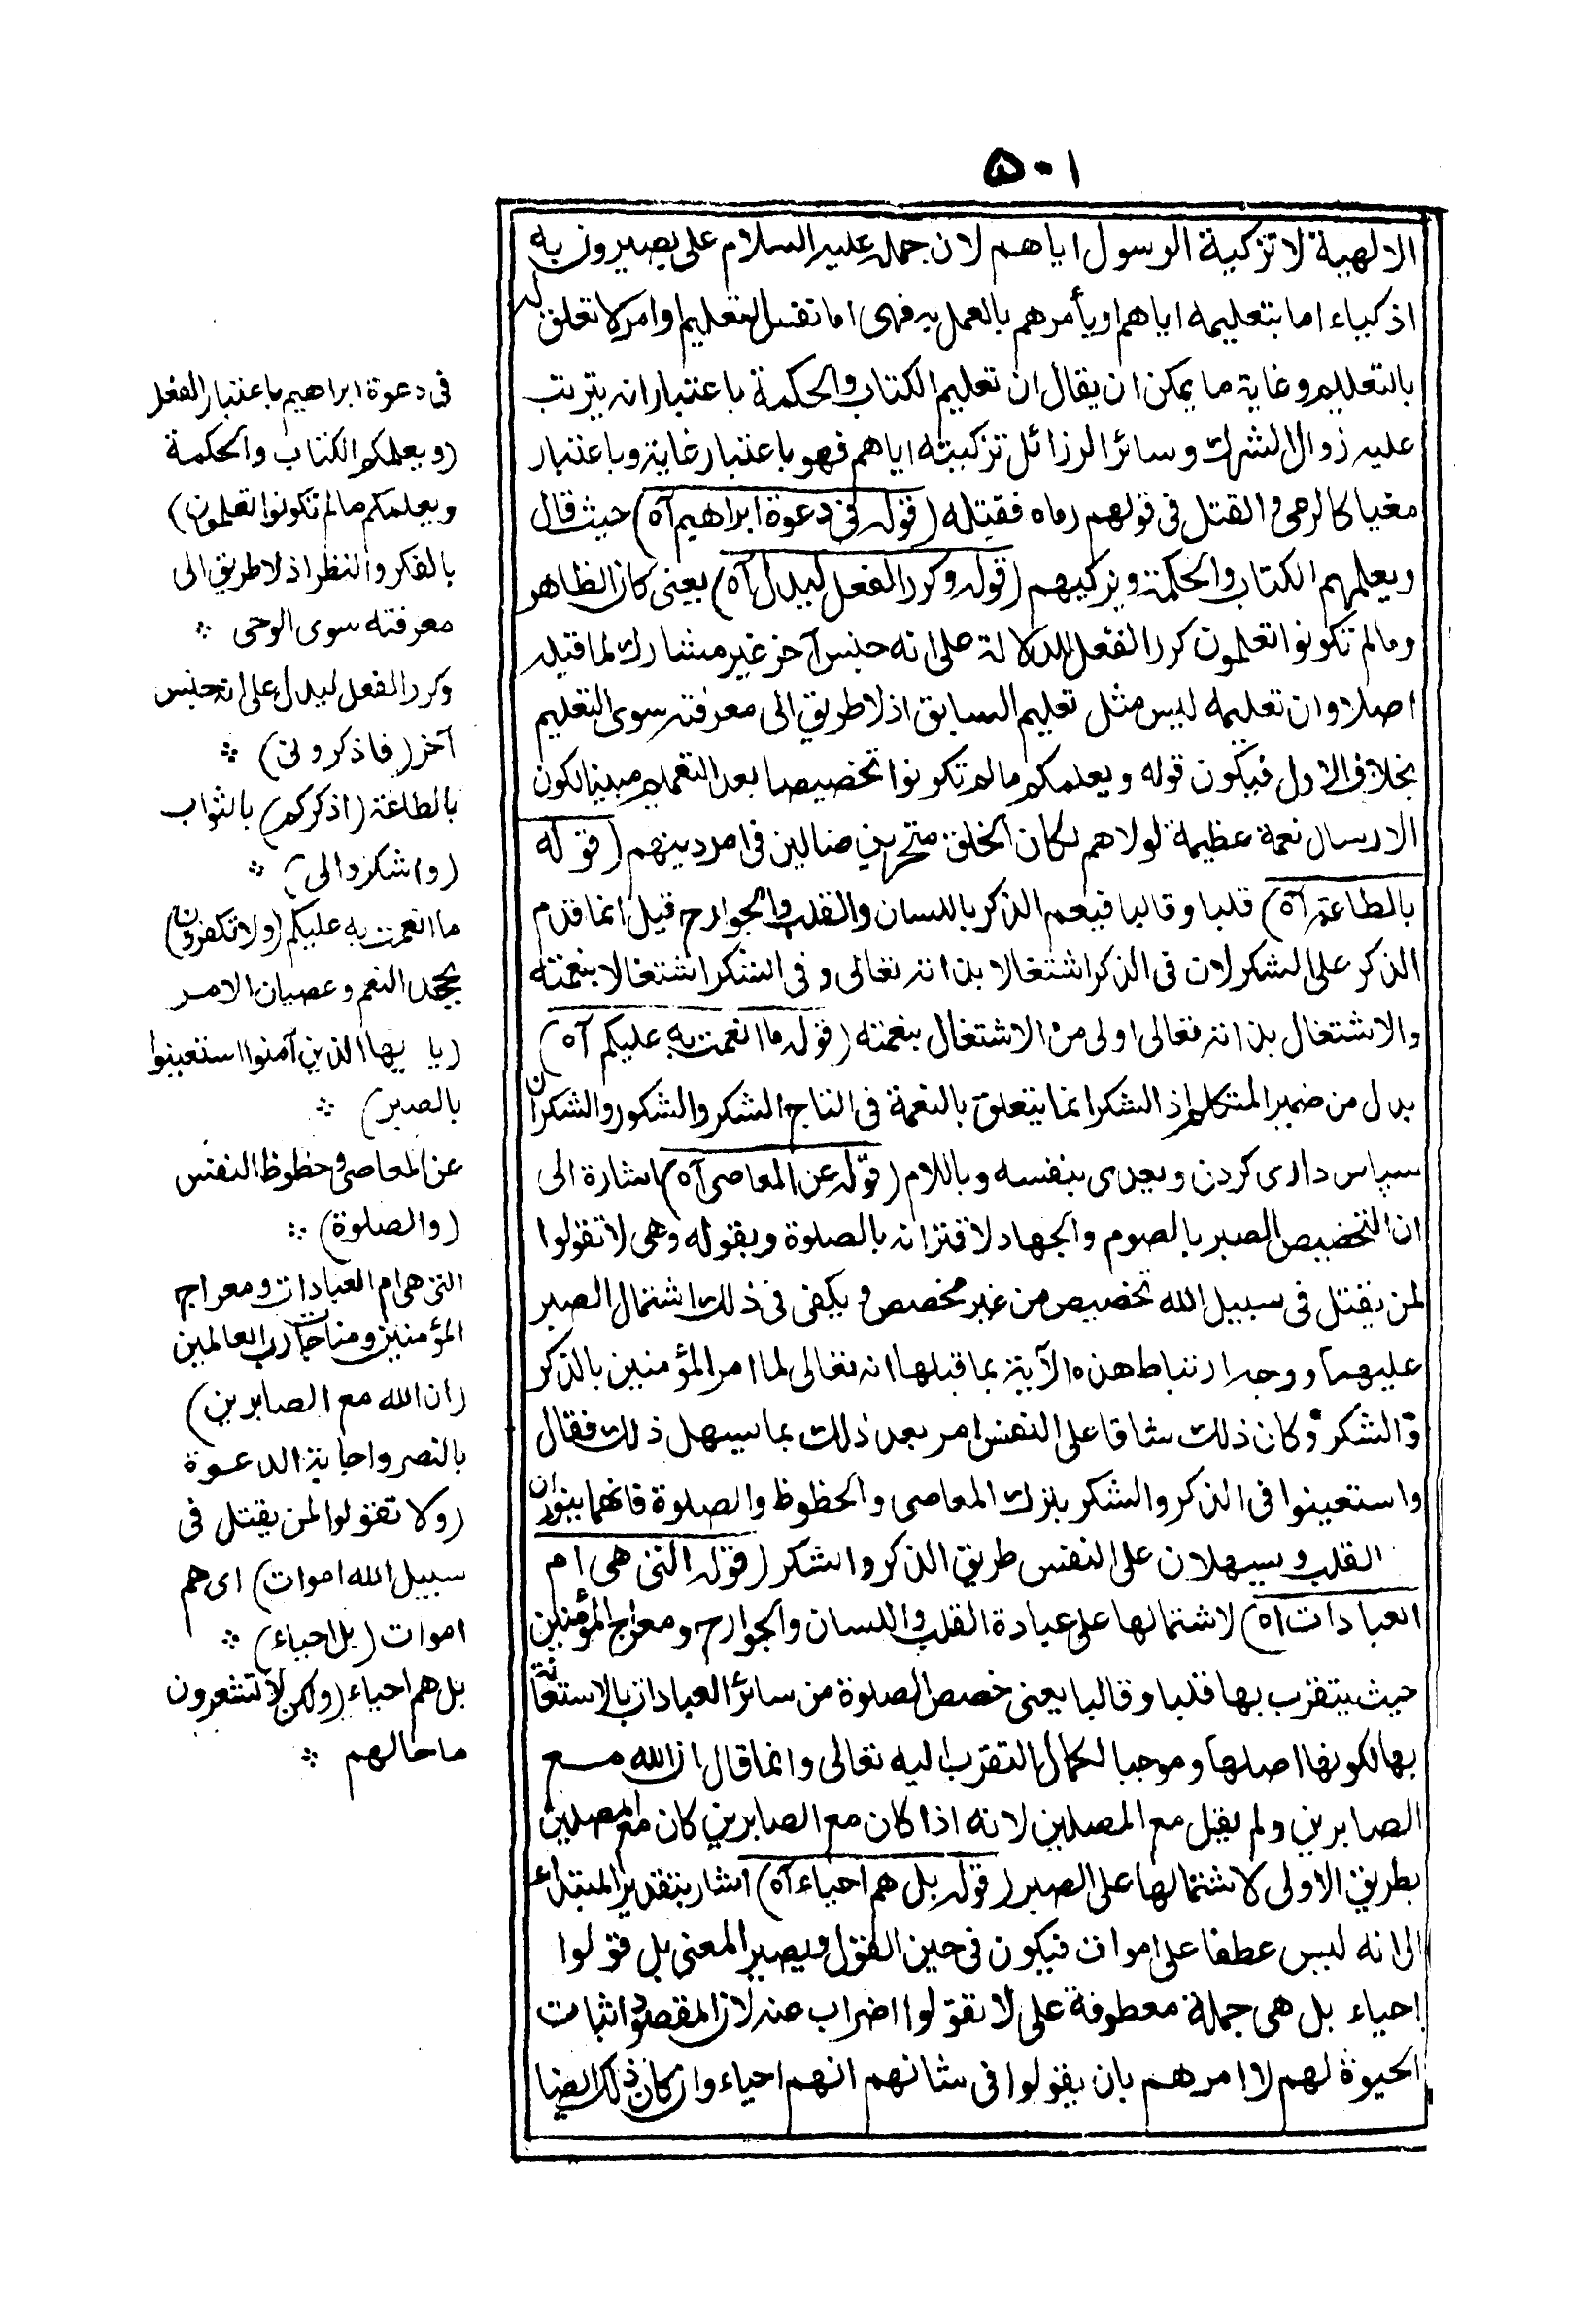 ٥٠١
الالهية لا تزكية الرسول اياهم لان جمله عليه السلام على يصيرون به
اذكياء اما بتعليمه اياهم او يأمرهم بالعمل به فهى اما نفس التعليم او امر لا تعلق له
بالتعليم وغاية ما يمكن ان يقال ان تعليم الكتاب والحكمة باعتبار انه يترتب
عليه زوال الشرك وسائر الرزائل تزكيته اياهم فهو باعتبار غاية وباعتبار
مغيا كالرمى والقتل فى قولهم رماه فقتله (قوله فى دعوة ابراهيم آه) حيث قال
ويعلمهم الكتاب والحكمة ويزكيهم (قوله وكرر الفعل ليدل آه) يعنى كان الظاهر
وما لم تكونوا تعلمون كرر الفعل للدلالة على انه جنس آخر غير مشارك لما قبله
اصلا وان تعليمه ليس مثل تعليم السابق اذ لا طريق الى معرفته سوى التعليم
بخلاف الاول فيكون قوله ويعلمكم ما لم تكونوا تخصيصا بعد التعميم مبينا لكون
الارسال نعمة عظيمة لولاهم لكان الخلق متحيرين ضالين فى امر دينهم (قوله
بالطاعة آه) قلبا وقالبا فيعم الذكر باللسان والقلب والجوارح قيل انما قدم
الذكر على الشكر لان فى الذكر اشتغالا بذاته تعالى وفى الشكر اشتغالا بنعمته
والاشتغال بذاته تعالى اولى من الاشتغال بنعمته (قوله ما انعمت به عليكم آه)
بدل من ضمير المتكلم اذ الشكر انما يتعلق بالنعمة فى التاج الشكر والشكور والشكران
سپاس دارى كردن ويعدى بنفسه وباللام (قوله عن المعاصى آه) اشارة الى
ان التخصيص الصبر بالصوم والجهاد لاقترانه بالصلوة وبقوله وهى لا تقولوا
لمن يقتل فى سبيل الله تخصيص من غير مخصص و يكفى فى ذلك اشتمال الصبر
عليهما ووجه ارتباط هذه الآية بما قبلها انه تعالى لما امر المؤمنين بالذكر
والشكر وكان ذلك شاقا على النفس امر بعد ذلك بما يسهل ذلك فقال
واستعينوا فى الذكر والشكر بترك المعاصى والحظوظ والصلوة فانهما ينوران
القلب ويسهلان على النفس طريق الذكر والشكر (قوله التى هى ام
العبادات اه) لاشتمالها على عبادة القلب واللسان والجوارح ومعراج المؤمنين
حيث يتقرب بها قلبا وقالبا يعنى خصص الصلوة من سائر العبادات بالاستعانة
بها لكونها اصلها وموجبا لكمال التقرب اليه تعالى وانما قال ان الله مع
الصابرين ولم يقل مع المصلين لانه اذا كان مع الصابرين كان مع المصلين
بطريق الاولى لاشتمالها على الصبر (قوله بل هم احياء آه) اشار بتقدير المبتدأ
الى انه ليس عطفا على اموات فيكون فى حين القول ويصير المعنى بل قولوا
احياء بل هى جملة معطوفة على لا تقولوا اضراب عنه لان المقصود اثبات
الحيوة لهم لا امرهم بان يقولوا فى شانهم انهم احياء وان كان ذلك ايضا
فى دعوة ابراهيم باعتبار الفعل
(ويعلمكم الكتاب والحكمة
ويعلمكم ما لم تكونوا تعلمون)
بالفكر والنظر اذ لا طريق الى
معرفته سوى الوحى ∴
وكرر الفعل ليدل على انه جنس
آخر (فاذكرونى) ∴
بالطاعة (اذكركم) بالثواب
(واشكروا لى) ∴
ما انعمت به عليكم (ولا تكفرون)
بجحد النعم وعصيان الامر
(يا يها الذين آمنوا استعينوا
بالصبر) ∴
عن المعاصى وحظوظ النفس
(والصلوة) ∴
التى هى ام العبادات ومعراج
المؤمنين ومناجات رب العالمين
(ان الله مع الصابرين)
بالنصر واجابة الدعوة
(ولا تقولوا لمن يقتل فى
سبيل الله اموات) اى هم
اموات (بل احياء) ∴
بل هم احياء (ولكن لا تشعرون
ما حالهم ∴